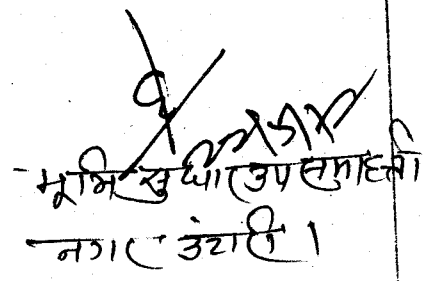 भूमि सुधार उप समाहर्ता
नगर उंटारी।